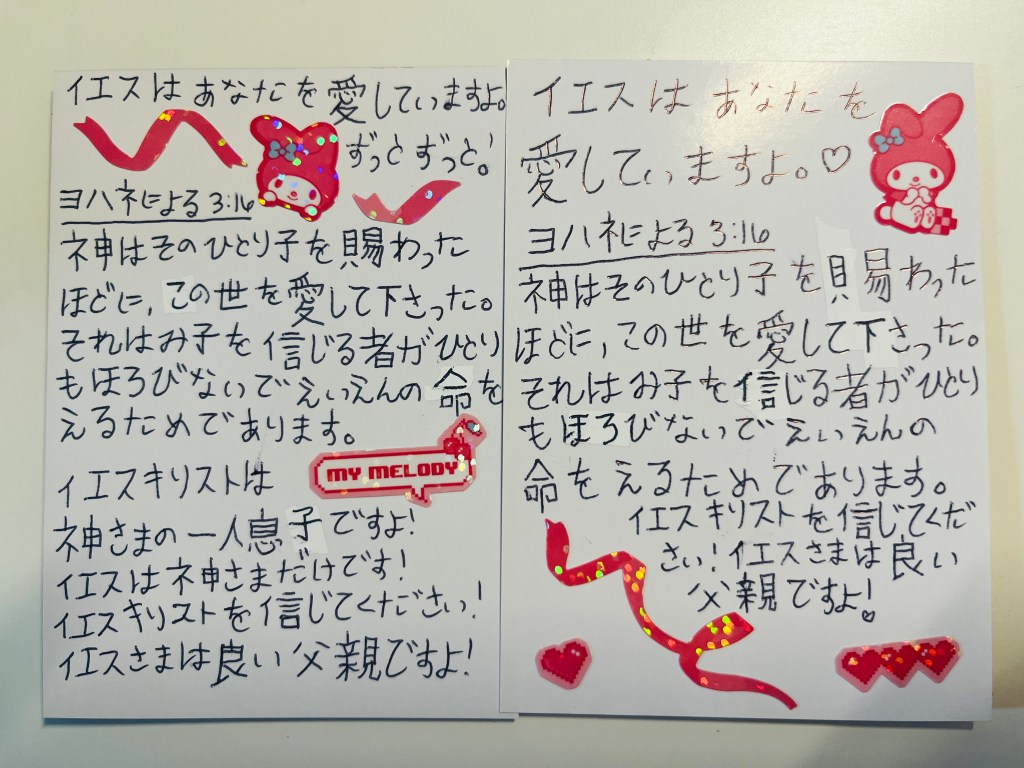 イエスはあなたを愛していますよ。
ずっとずっと！
ヨハネによる3:16
神はそのひとり子を賜わった
ほどに,この世を愛して下さった。
それはみ子を信じる者がひとり
もほろびないでえいえんの命を
えるためであります。
MY MELODY
イエスキリストは
神さまの一人息子ですよ！
イエスは神さまだけです！
イエスキリストを信じてください！
イエスさまは良い父親ですよ！
イエスはあなたを
愛していますよ。♡
ヨハネによる3:16
神はそのひとり子を賜わった
ほどに,この世を愛して下さった。
それはみ子を信じる者がひとり
もほろびないでえいえんの
命をえるためであります。
イエスキリストを信じてくだ
さい！イエスさまは良い
父親ですよ！